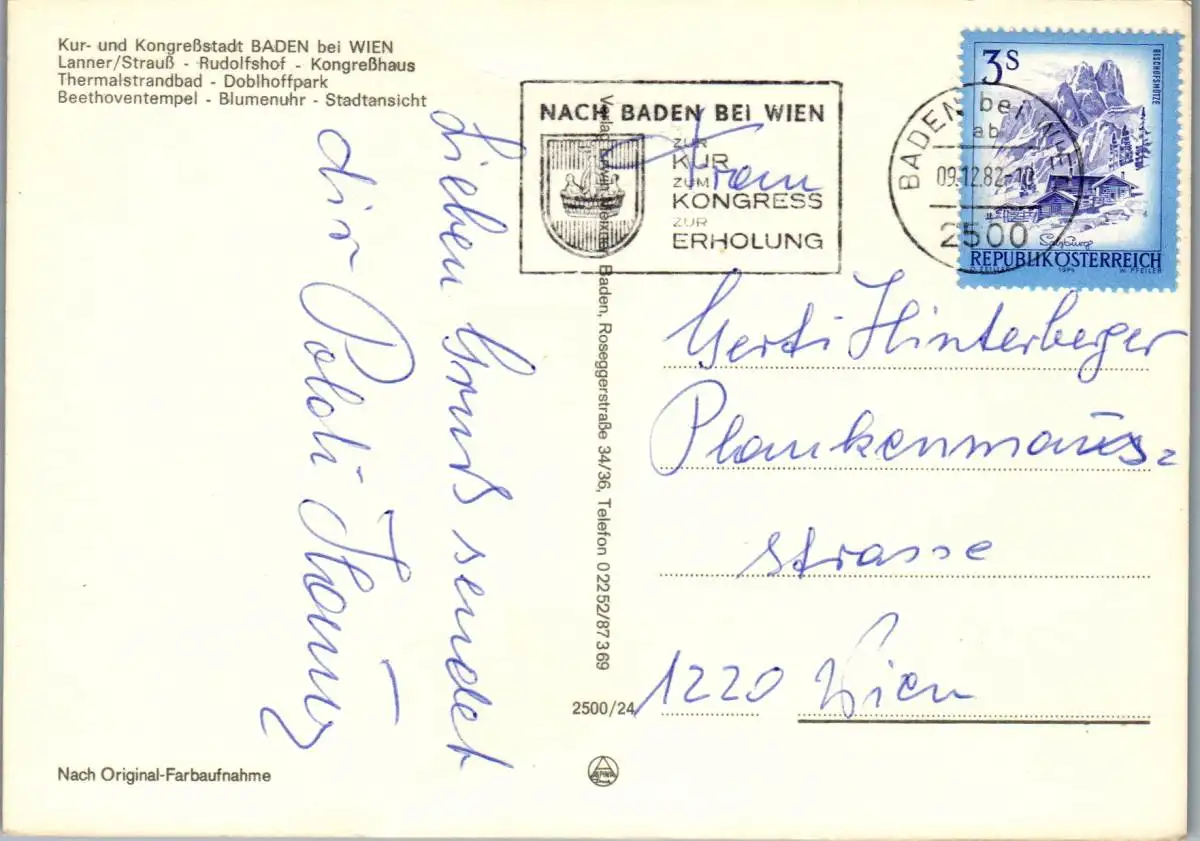 Kur- und Kongreßstadt BADEN bei WIEN
Lanner/Strauß - Rudolfshof - Kongreßhaus
Thermalstrandbad - Doblhoffpark
Beethoventempel - Blumenuhr - Stadtansicht
NACH BADEN BEI WIEN
ZUR
KUR
ZUM
KONGRESS
ZUR
ERHOLUNG
BADEN bei WIEN
ab
09.12.82-10
2500
3S
BISCHOFSMÜTZE
Salzburg
REPUBLIK ÖSTERREICH
1974 W. PFEILER
Lieben Gruß sendet
dir Poldi
Verlag Erwin Meixner, Baden, Roseggerstraße 34/36, Telefon 0 22 52/87 3 69
Frau
Gerti Hinterberger
Plankenmais-
strasse
1220 Wien
2500/24
Nach Original-Farbaufnahme